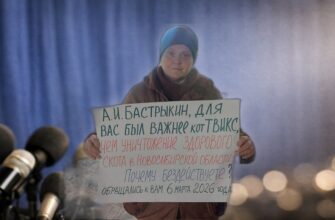 А.И. БАСТРЫКИН, ДЛЯ
ВАС БЫЛ ВАЖНЕЕ КОТ ТВИКС,
ЧЕМ УНИЧТОЖЕНИЕ ЗДОРОВОГО
СКОТА В НОВОСИБИРСКОЙ ОБЛАСТИ?
ПОЧЕМУ БЕЗДЕЙСТВУЕТЕ?
ОБРАЩАЛИСЬ К ВАМ 6 МАРТА 2026 ГОДА